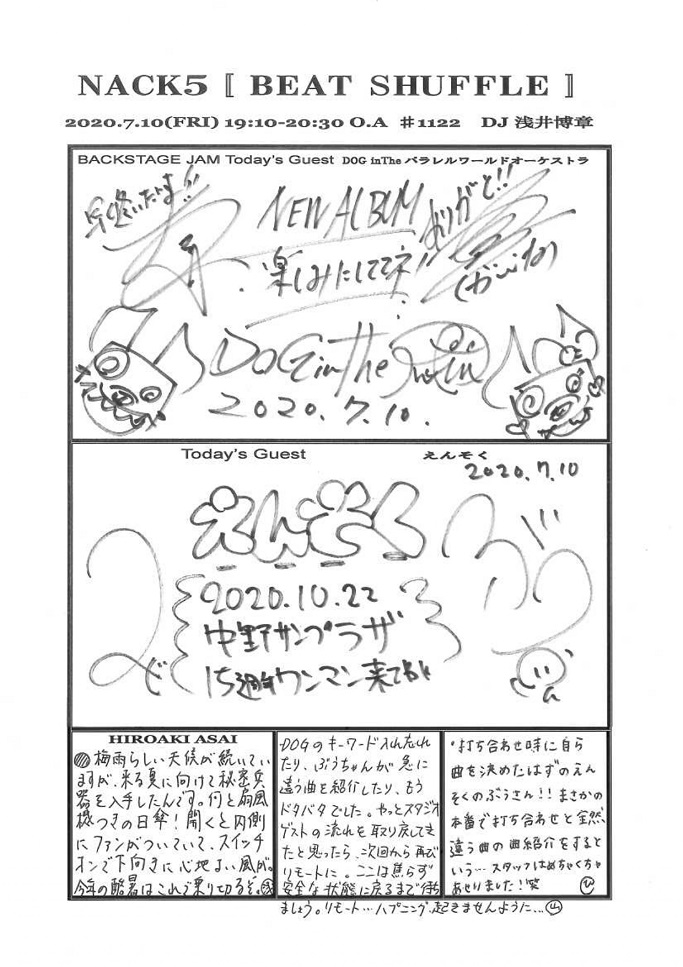 NACK5 〚 BEAT SHUFFLE 〛
2020.7.10(FRI) 19:10-20:30 O.A ♯1122 DJ 浅井博章
BACKSTAGE JAM Today's Guest DOG inThe パラレルワールドオーケストラ
NEW ALBUM
ありがと!!
楽しみにしててネ!
DOG in The
2020.7.10.
Today's Guest えんそく
2020.7.10
えんそく
2020.10.22
中野サンプラザ
15周年ワンマン来てね
ぶう
HIROAKI ASAI
梅雨らしい天候が続いてい
ますが、来る夏に向けて秘密兵
器を入手したんです。何と扇風
機つきの日傘!開くと内側
にファンがついていて、スイッチ
オンで下向きに心地よい風が。
今年の酷暑はこれで乗り切るぞ。浅
DOGのキーワード入れ忘れ
たり、ぶうちゃんが急に
違う曲を紹介したり、もう
ドタバタでした。やっとスタジオ
ゲストの流れを取り戻してき
たと思ったら、次回から再び
リモートに。ここは焦らず
安全な状態に戻るまで待ち
ましょう。リモート…ハプニング、起きませんように…山
・打ち合わせ時に自ら
曲を決めたはずのえん
そくのぶうさん!!まさかの
本番で打ち合わせと全然
違う曲の曲紹介をすると
いう…スタッフはめちゃくちゃ
あせりました!笑 ひ